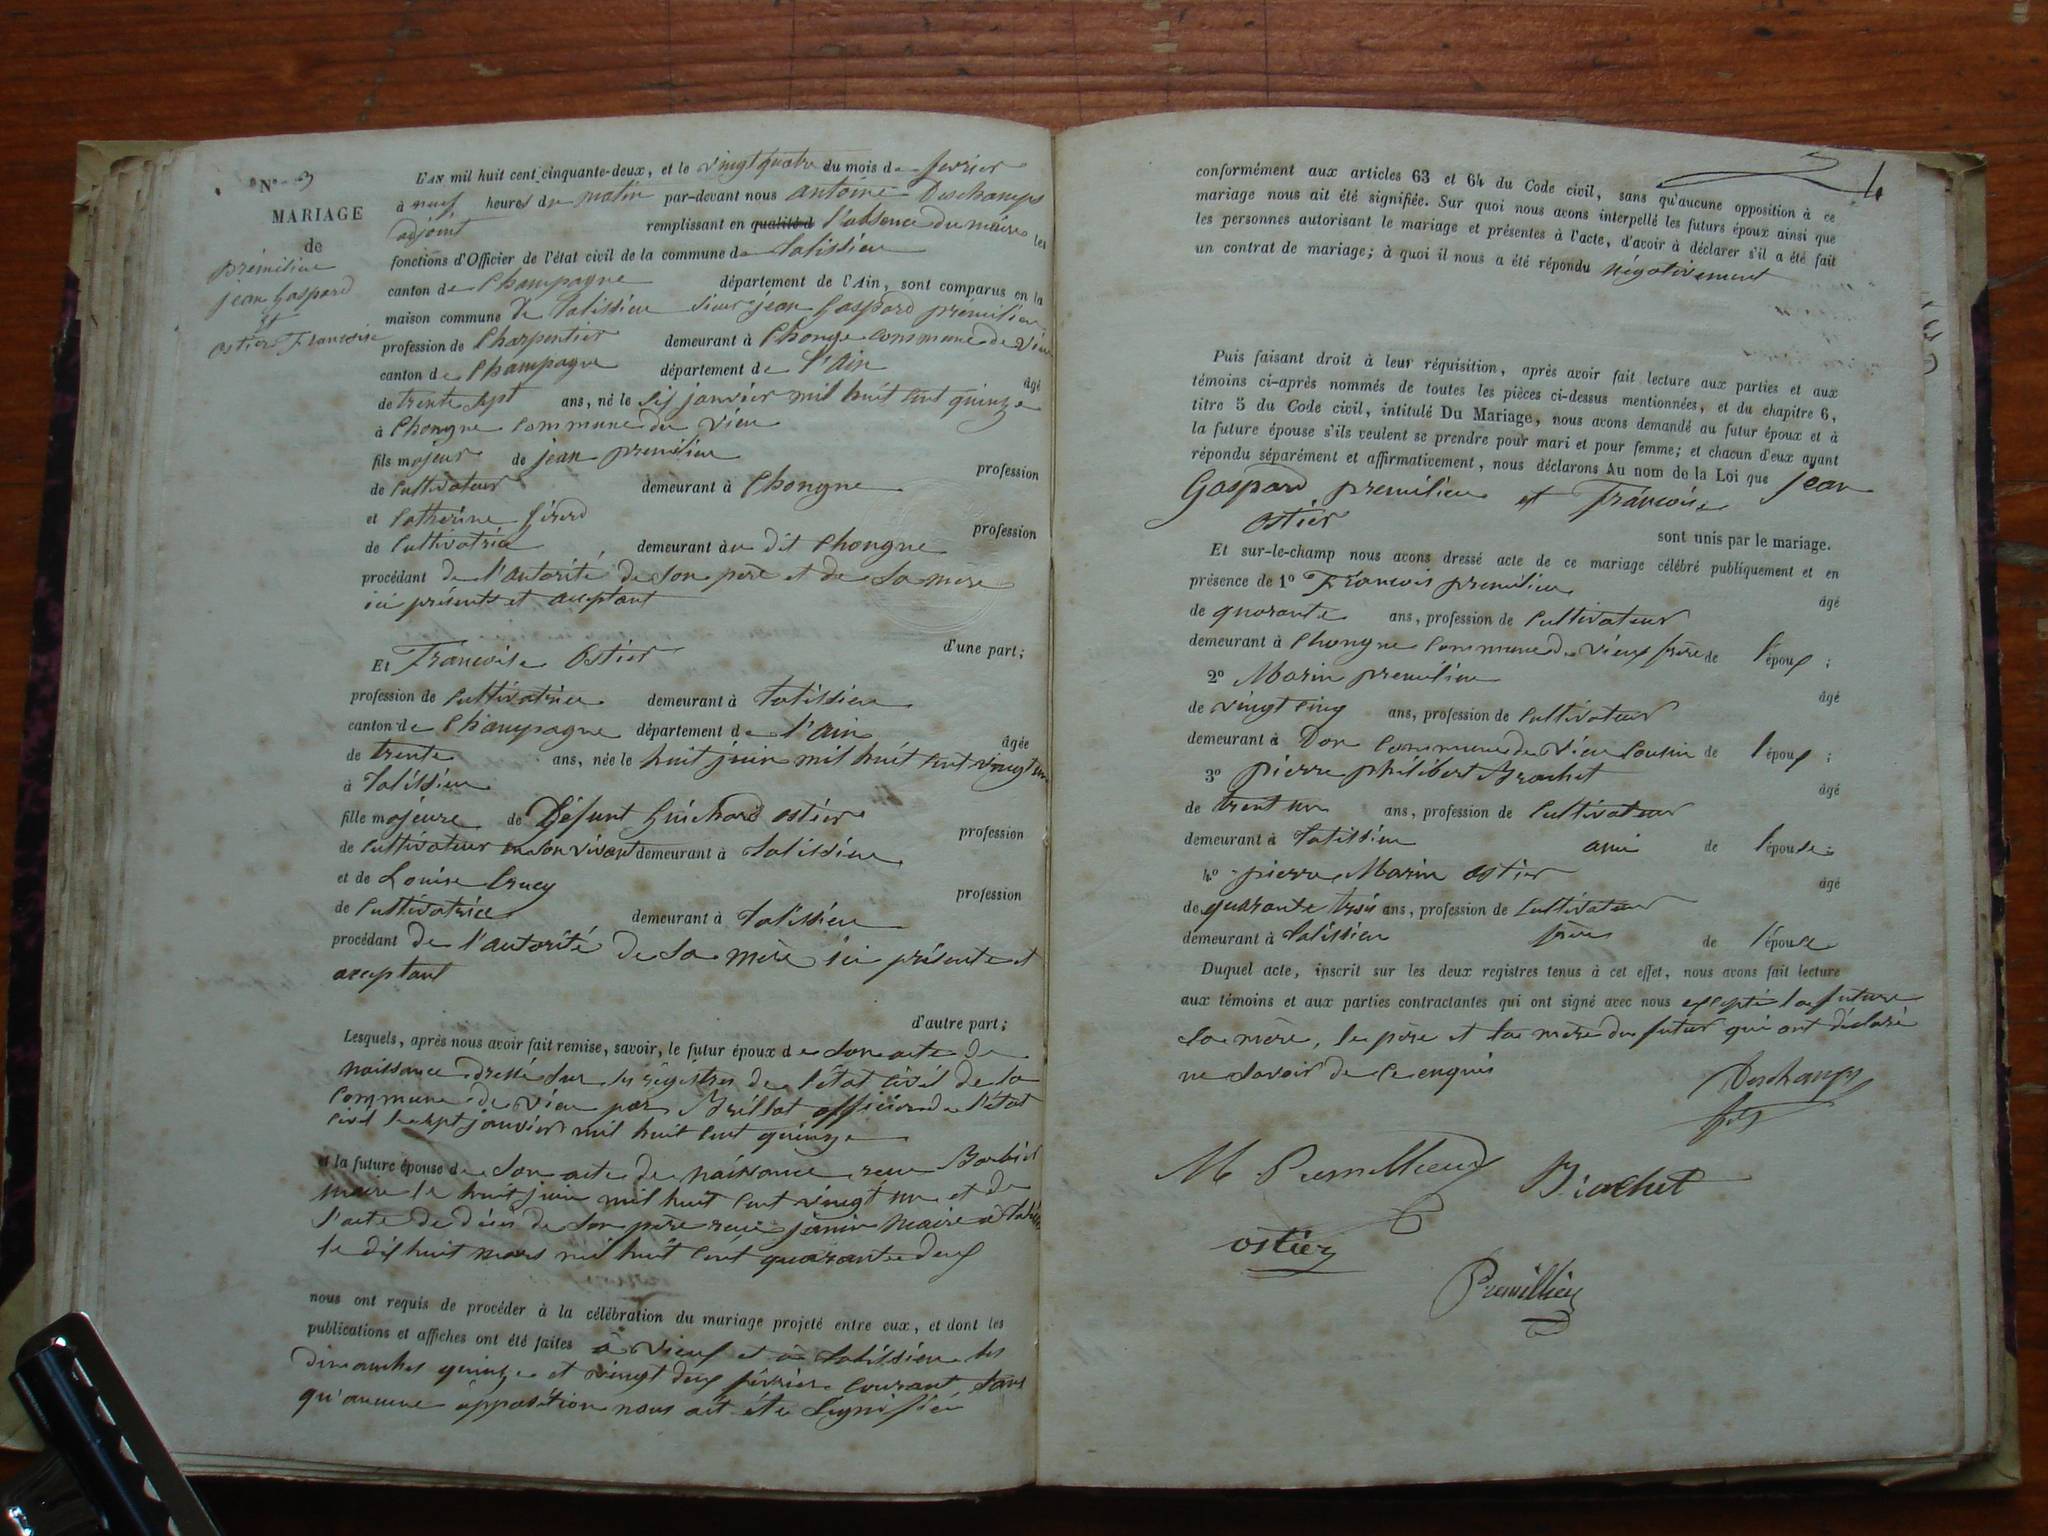 N° 3
MARIAGE
de
prémilieu
jean Gaspard
et
ostier Francoise
L'AN mil huit cent cinquante-deux, et le vingt quatre du mois de fevrier
à neuf heures du matin par-devant nous antoine Deschamps
adjoint remplissant en qualité d l'absence du maire les
fonctions d'Officier de l'état civil de la commune de talissieu
canton de Champagne département de l'Ain, sont comparus en la
maison commune de talissieu sieur jean Gaspard prémilieu
profession de Charpentier demeurant à Chongne commune de vieu
canton de Champagne département de l'ain
âgé
de trente sept ans, né le six janvier mil huit cent quinze
à Chongne commune de vieu
fils majeur de jean premilieu
profession
de cultivateur demeurant à Chongne
et Catherine Girerd
profession
de cultivatrice demeurant au dit Chongne
procédant de l'autorité de son père et de sa mère
ici présents et acceptant
d'une part;
Et Francoise ostier
profession de cultivatrice demeurant à talissieu
canton de Champagne département de l'ain
âgée
de trente ans, née le huit juin mil huit cent vingt un
à talissieu
fille majeure de Défunt Guichard ostier
profession
de cultivateur en son vivant demeurant à talissieu
et de Louise Crucy
profession
de cultivatrice demeurant à talissieu
procédant de l'autorité de sa mère ici présente et
acceptant
d'autre part;
Lesquels, après nous avoir fait remise, savoir, le futur époux de son acte de
naissance dressé sur les régistres de l'état civil de la
commune de vieu par Brillat officier de l'état
civil le sept janvier mil huit cent quinze
et la future épouse de son acte de naissance recu Barbier
maire le huit juin mil huit cent vingt un et de
l'acte de décès de son père recu janin maire à
le dix huit mars mil huit cent quarante deux
nous ont requis de procéder à la célébration du mariage projeté entre eux, et dont les
publications et affiches ont été faites à vieux et à talissieu les
dimanches quinze et vingt deux février courant sans
qu'aucune opposition nous ait été signifiée
4
conformément aux articles 63 et 64 du Code civil, sans qu'aucune opposition à ce
mariage nous ait été signifiée. Sur quoi nous avons interpellé les futurs époux ainsi que
les personnes autorisant le mariage et présentes à l'acte, d'avoir à déclarer s'il a été fait
un contrat de mariage; à quoi il nous a été répondu négativement
Puis faisant droit à leur réquisition, après avoir fait lecture aux parties et aux
témoins ci-après nommés de toutes les pièces ci-dessus mentionnées, et du chapitre 6,
titre 5 du Code civil, intitulé Du Mariage, nous avons demandé au futur époux et à
la future épouse s'ils veulent se prendre pour mari et pour femme; et chacun d'eux ayant
répondu séparément et affirmativement, nous déclarons Au nom de la Loi que jean
Gaspard premilieu et Francoise
ostier
sont unis par le mariage.
Et sur-le-champ nous avons dressé acte de ce mariage célébré publiquement et en
présence de 1° Francois premilieu
âgé
de quarante ans, profession de cultivateur
demeurant à Chongne commune de vieux frère de l'époux ;
2° Marin premilieu
âgé
de vingt cinq ans, profession de cultivateur
demeurant à Don commune de vieu cousin de l'époux ;
3° pierre philibert Brachet
âgé
de trent un ans, profession de cultivateur
demeurant à talissieu ami de l'épouse ;
4° pierre Marin ostier
âgé
de quarante trois ans, profession de cultivateur
demeurant à talissieu frère de l'épouse
Duquel acte, inscrit sur les deux registres tenus à cet effet, nous avons fait lecture
aux témoins et aux parties contractantes qui ont signé avec nous excepté la future
sa mère, le père et la mère du futur qui ont déclaré
ne savoir de ce enquis
Deschamps
M Premillieux
Brachet
ostier
Premillieu